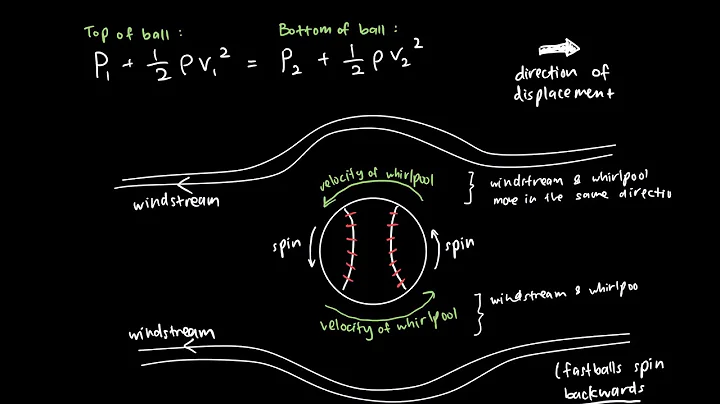 Top of ball :
Bottom of ball :
P₁ + 1/2 ρv₁² = P₂ + 1/2 ρv₂²
direction of
displacement
velocity of whirlpool
windstream & whirlpool
move in the same directio
windstream
spin
spin
windstream & whirlpoo
velocity of whirlpool
windstream
(fastballs spin
backwards